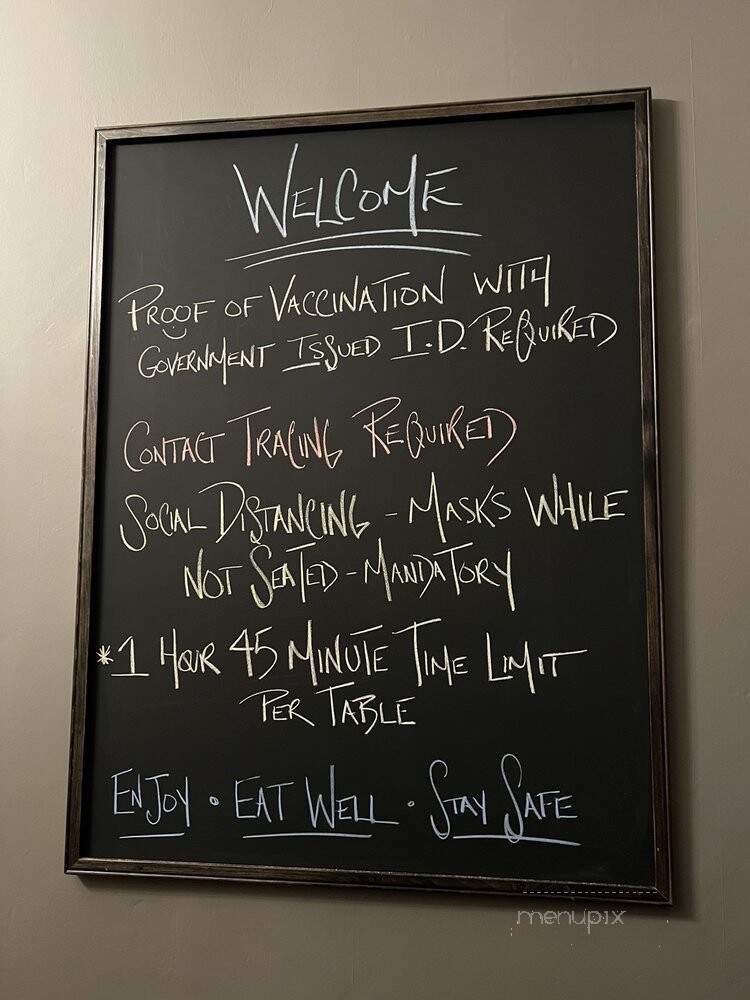 WELCOME
PROOF OF VACCINATION WITH
GOVERNMENT ISSUED I.D. REQUIRED
CONTACT TRACING REQUIRED
SOCIAL DISTANCING - MASKS WHILE
NOT SEATED - MANDATORY
*1 HOUR 45 MINUTE TIME LIMIT
PER TABLE
ENJOY • EAT WELL • STAY SAFE
menupix